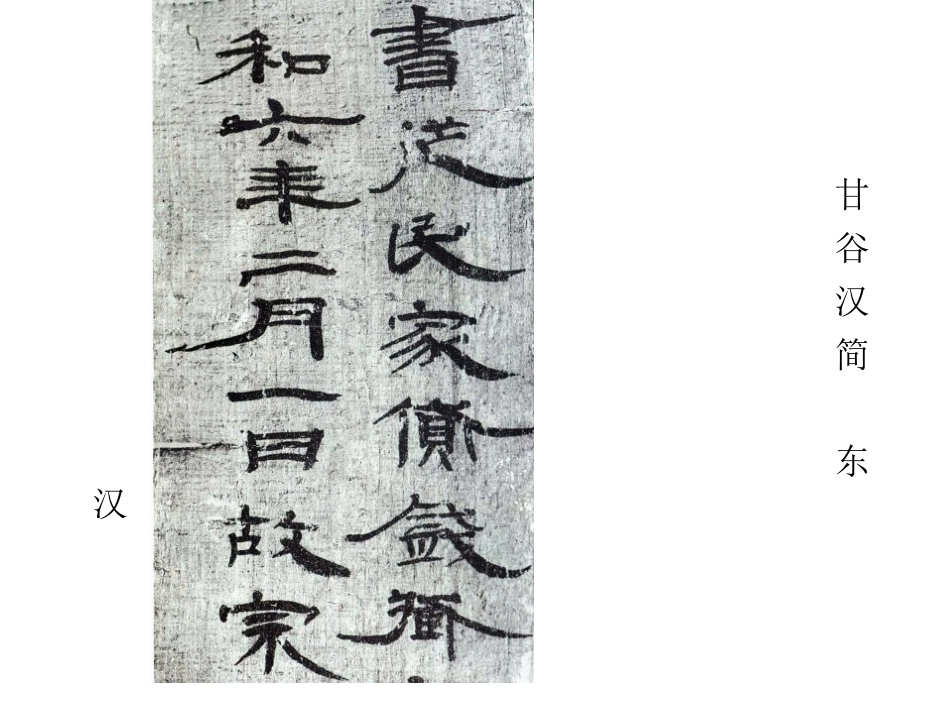 甘谷汉简 东
書 民家
和六年二月一日故宗
汉